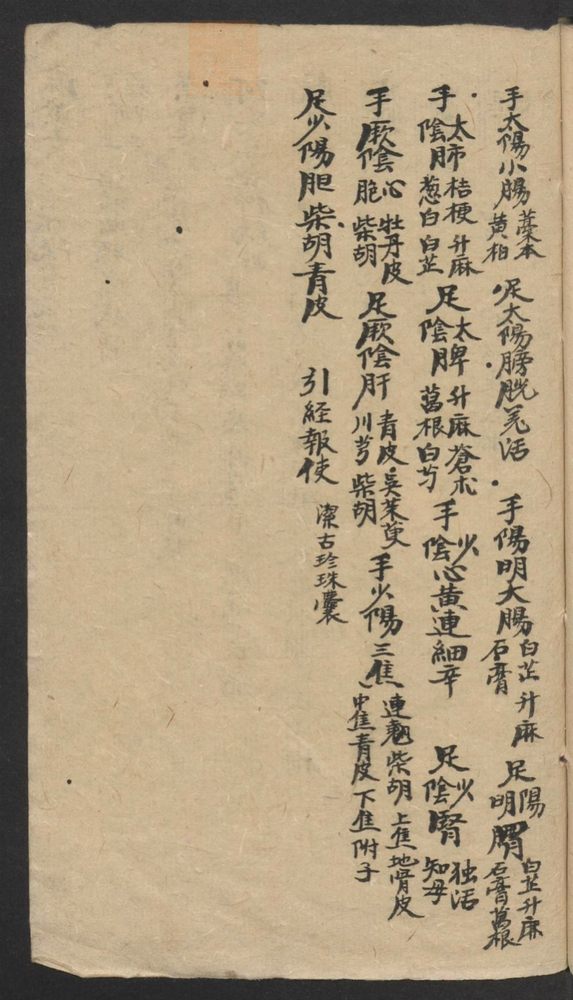 手太陽小腸 藁本 黄柏 足太陽膀胱羌活 手陽明大腸 白芷升麻 石膏 足陽明胃 白芷升麻 石膏葛根
手太陰肺 桔梗升麻 葱白白芷 足太陰脾 升麻蒼朮 葛根白芍 手少陰心黄連細辛 足少陰腎 独活 知母
手厥陰心胞 牡丹皮 柴胡 足厥陰肝 青皮吳茱萸 川芎柴胡 手少陽三焦 連翹柴胡上焦地骨皮 中焦青皮下焦附子
足少陽胆柴胡青皮 引経報使 潔古珍珠囊